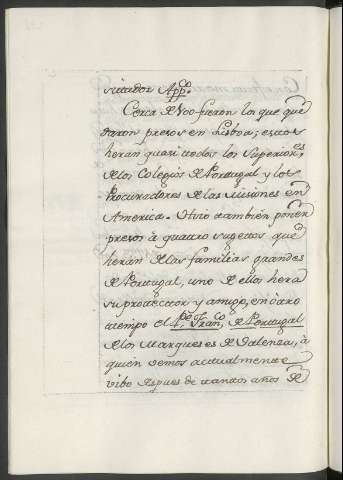 sitador App.co
Cerca de 200 fueron los que que
daron presos en Lisboa; estos
heran quasi todos los Superiores
de los Colegios de Portugal y los
Procuradores de las Misiones en
America. Hizo tambièn poner
presos à quatro sugetos que
heràn de las familias grandes
de Portugal, uno de ellos hera
su protector y amigo, en òtro
tiempo el P.e Fran.co de Portugal
de los Marqueses de Valensa, à
quièn vemos actualmente
vibo despues de tantos años de